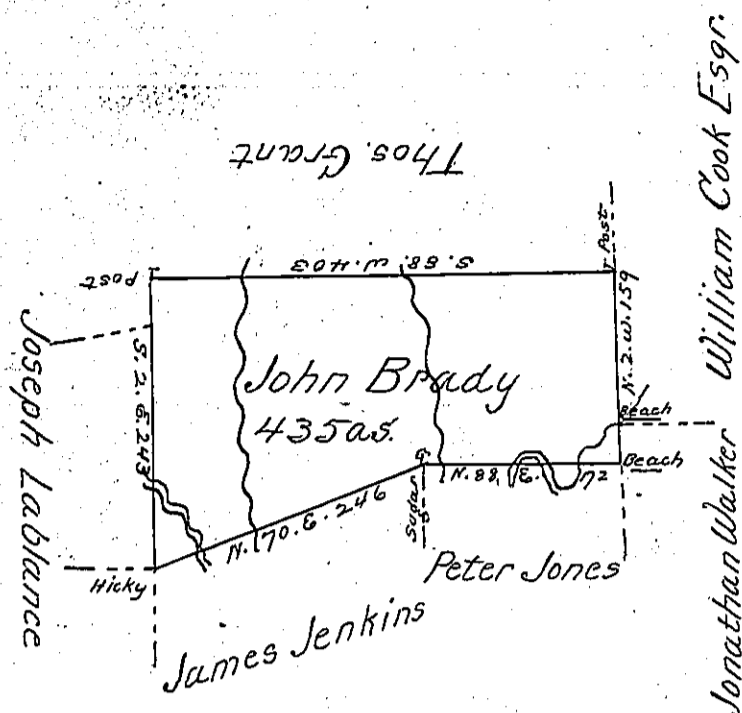 Thos. Grant
William Cook Esqr.
Post
S. 88. W. 403
Post
N. 2. W. 159
Joseph Lablance
S. 2. E. 243
John Brady
435 as.
Beach
Beach
N. 88. E. 172
Sugar
N. 70. E. 246
Hicky
Peter Jones
James Jenkins
Jonathan Walker